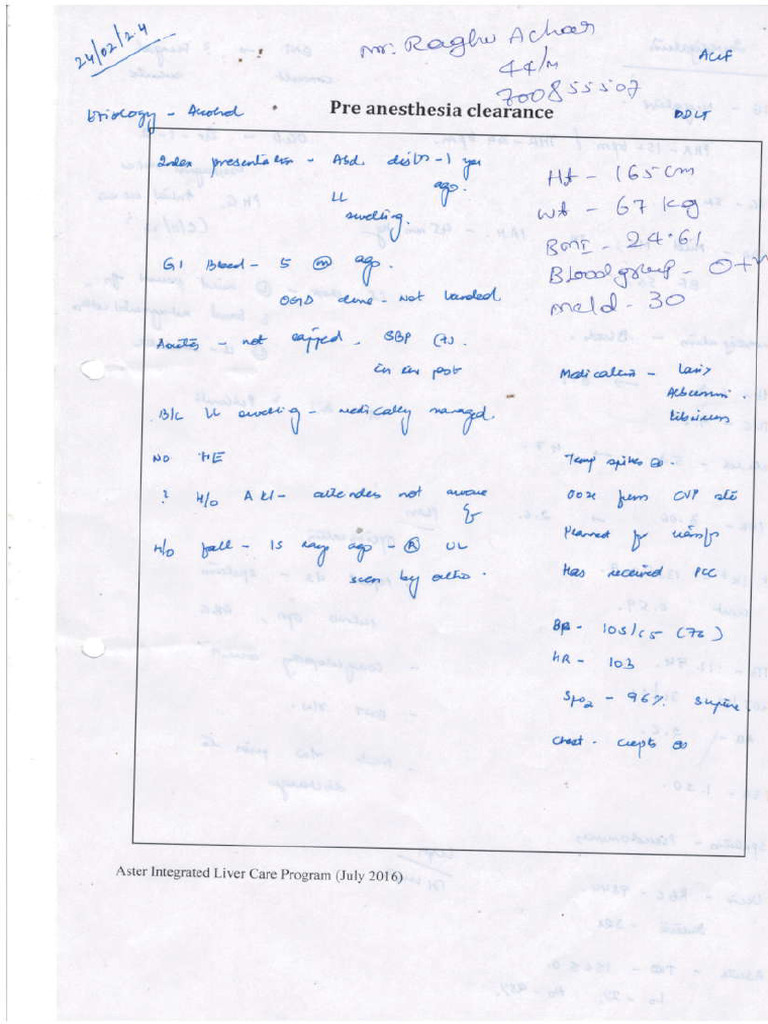 24/02/24
Mr. Raghu Achar
44/M
700855507
ACLF
Etiology - Alcohol
Pre anesthesia clearance
DDLT
Index presentation - Abd. dist - 1 yr ago.
LL swelling.
Ht - 165cm
Wt - 67 kg
BMI - 24.61
Blood group - O+
Meld - 30
GI Bleed - 5 ago.
OGD done - not banded
Ascites - not tapped. SBP
in the past
B/L LL swelling - medically managed.
NO HE
? H/o AKI - attenders not aware
H/o fall - 15 days ago - UL
seen by ortho.
Medications - Lasix
Albumin.
Temp spikes
ooze from CVP site
Planned for
Has received PCC
BP - 105/65 (76)
HR - 103
SpO2 - 96% supine.
Chest - crepts
Aster Integrated Liver Care Program (July 2016)